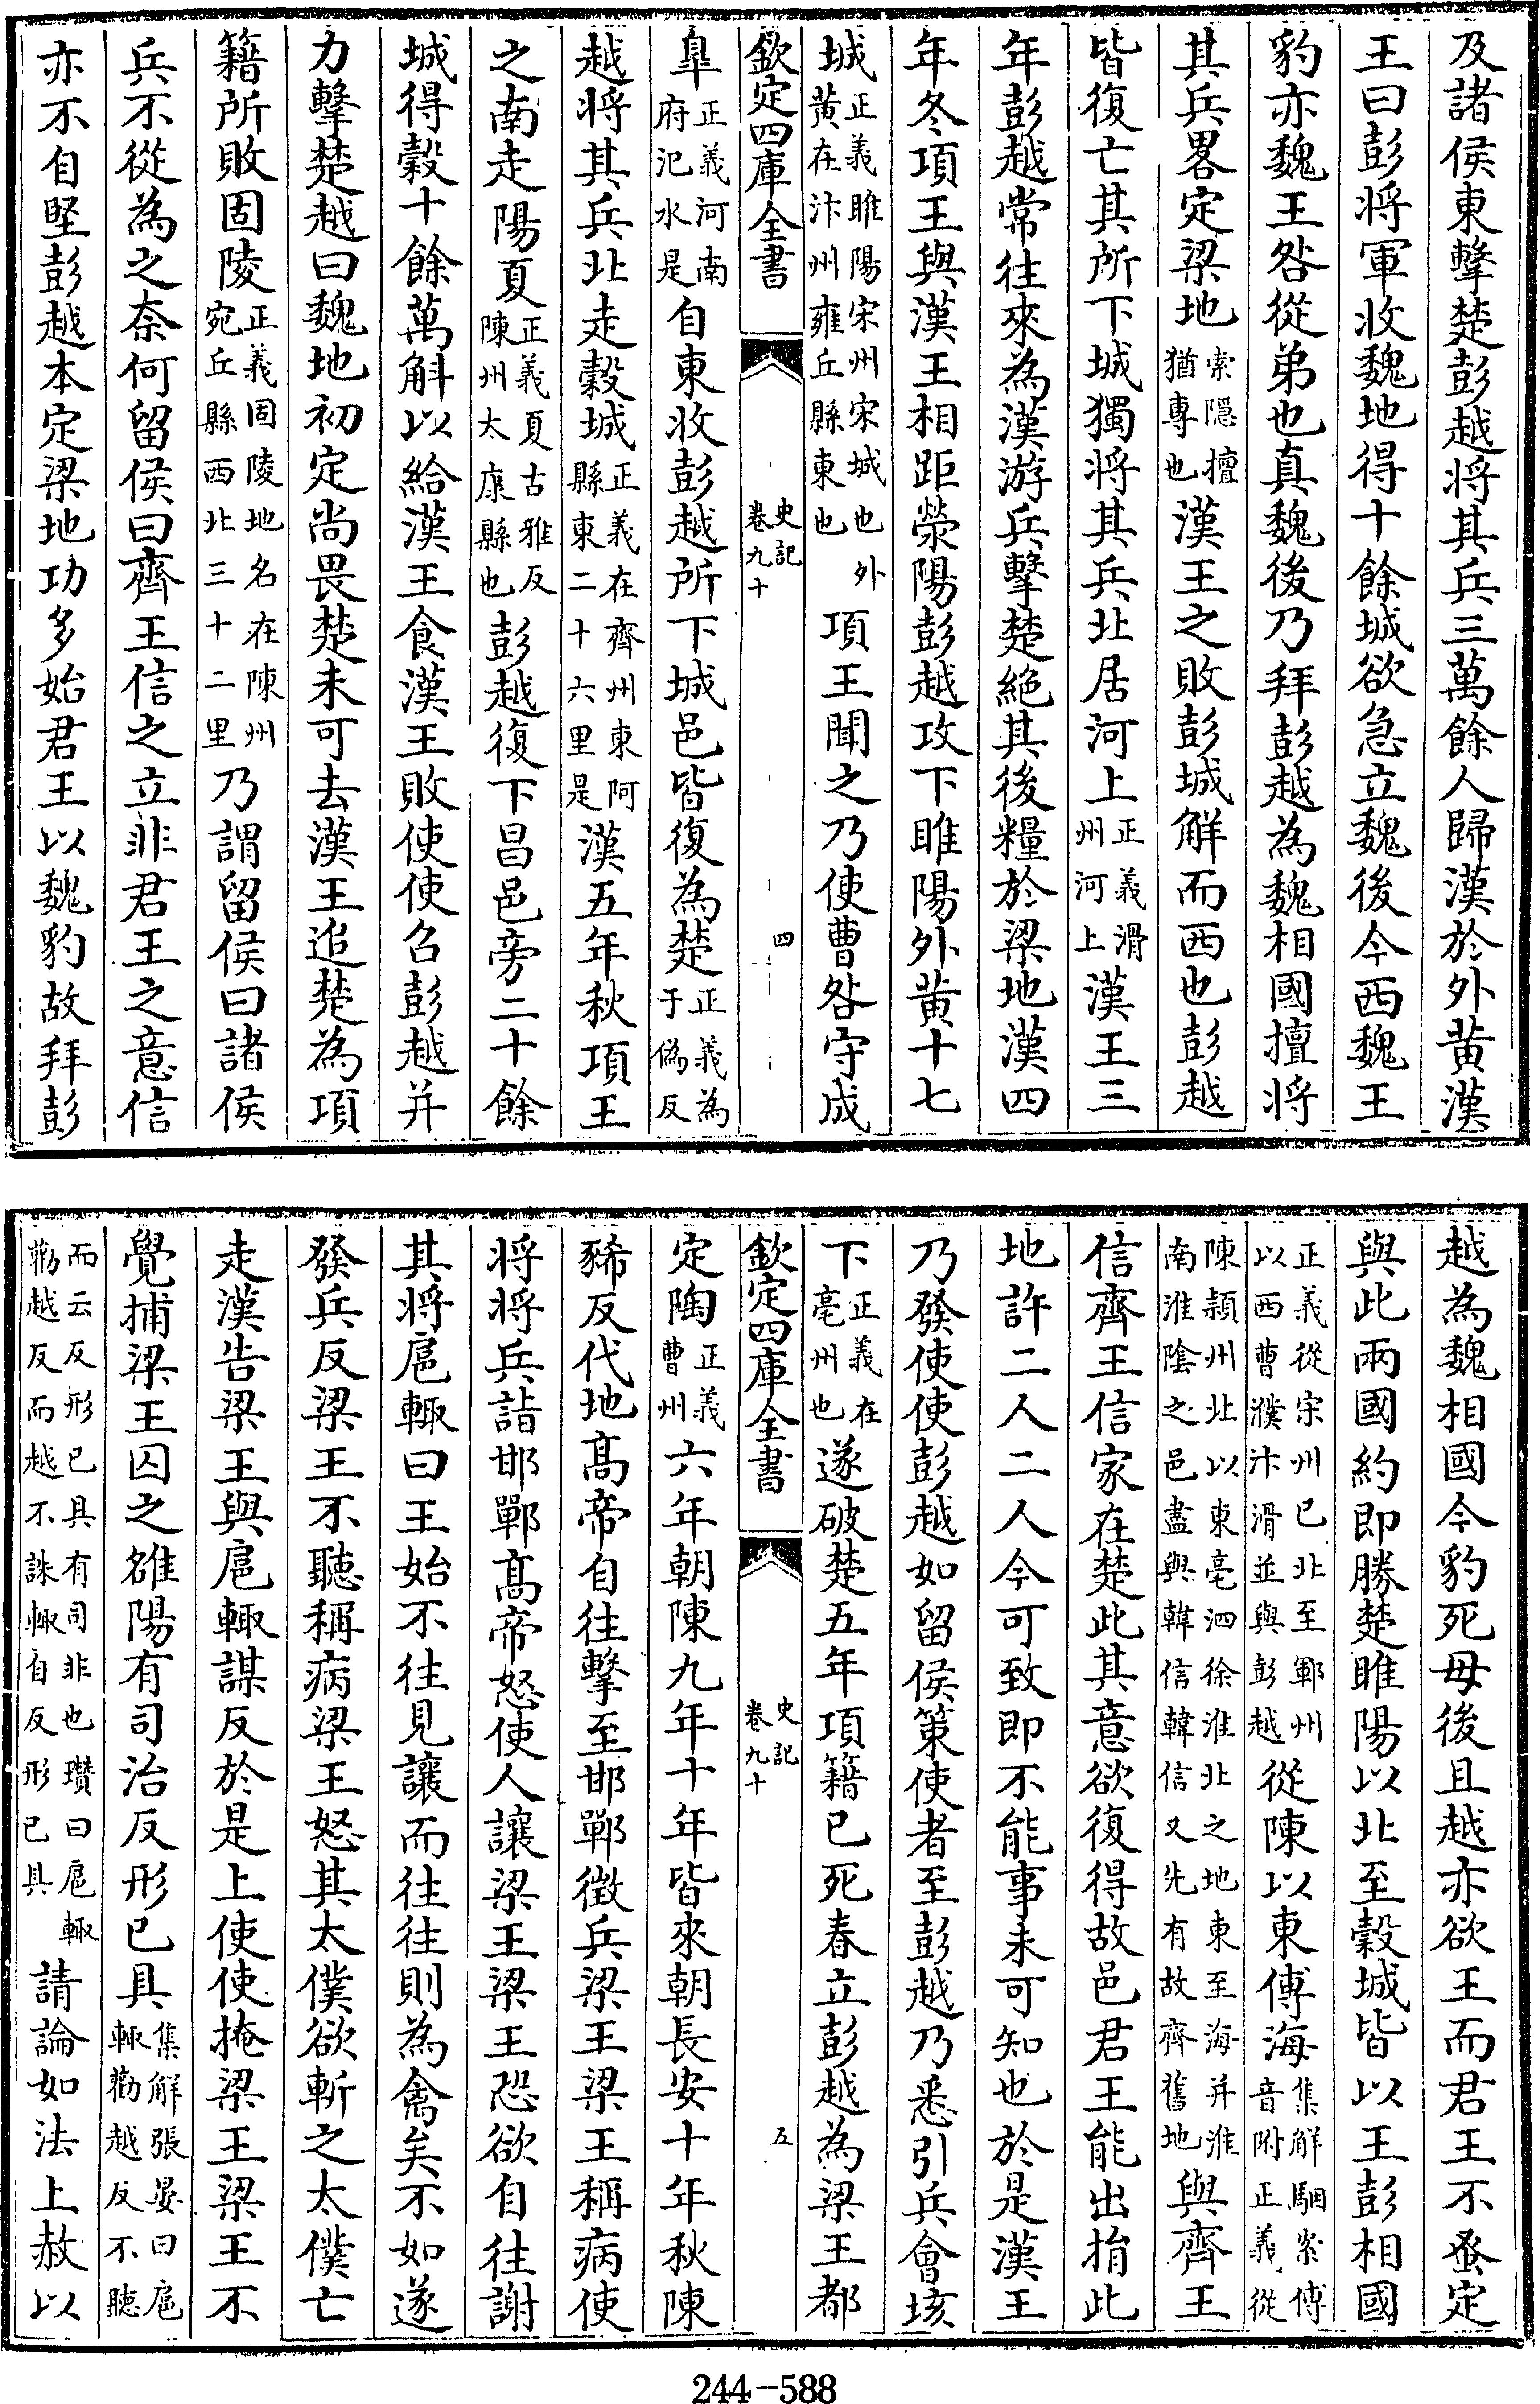 及諸侯東擊楚彭越將其兵三萬餘人歸漢於外黄漢
王曰彭将軍收魏地得十餘城欲急立魏後今西魏王
豹亦魏王咎從弟也真魏後乃拜彭越為魏相國擅将
其兵畧定梁地索隱擅猶專也漢王之敗彭城解而西也彭越
皆復亡其所下城獨将其兵北居河上正義滑州河上漢王三
年彭越常往來為漢游兵擊楚絶其後糧於梁地漢四
年冬項王與漢王相距滎陽彭越攻下睢陽外黄十七
城正義睢陽宋州宋城也外黄在汴州雍丘縣東也項王聞之乃使曹咎守成
欽定四庫全書 史記卷九十 四
皐正義河南府汜水是自東收彭越所下城邑皆復為楚正義為于偽反
越将其兵北走穀城正義在齊州東阿縣東二十六里是漢五年秋項王
之南走陽夏正義夏古雅反陳州太康縣也彭越復下昌邑旁二十餘
城得穀十餘萬斛以給漢王食漢王敗使使召彭越并
力擊楚越曰魏地初定尚畏楚未可去漢王追楚為項
籍所敗固陵正義固陵地名在陳州宛丘縣西北三十二里乃謂留侯曰諸侯
兵不從為之奈何留侯曰齊王信之立非君王之意信
亦不自堅彭越本定梁地功多始君王以魏豹故拜彭
越為魏相國今豹死毋後且越亦欲王而君王不蚤定
與此兩國約即勝楚睢陽以北至穀城皆以王彭相國
正義從宋州已北至鄆州以西曹濮汴滑並與彭越從陳以東傅海集解駰案傅音附正義從
陳潁州北以東亳泗徐淮北之地東至海并淮南淮陰之邑盡與韓信韓信又先有故齊舊地與齊王
信齊王信家在楚此其意欲復得故邑君王能出捐此
地許二人二人今可致即不能事未可知也於是漢王
乃發使使彭越如留侯策使者至彭越乃悉引兵會垓
下正義在亳州也遂破楚五年項籍已死春立彭越為梁王都
欽定四庫全書 史記卷九十 五
定陶正義曹州六年朝陳九年十年皆來朝長安十年秋陳
豨反代地髙帝自往擊至邯鄲徴兵梁王梁王稱病使
将将兵詣邯鄲髙帝怒使人讓梁王梁王恐欲自往謝
其将扈輙曰王始不往見讓而往往則為禽矣不如遂
發兵反梁王不聽稱病梁王怒其太僕欲斬之太僕亡
走漢告梁王與扈輙謀反於是上使使掩梁王梁王不
覺捕梁王囚之雒陽有司治反形已具集解張晏曰扈輙勸越反不聽
而云反形已具有司非也瓚曰扈輙勸越反而越不誅輙自反形已具請論如法上赦以
244-588